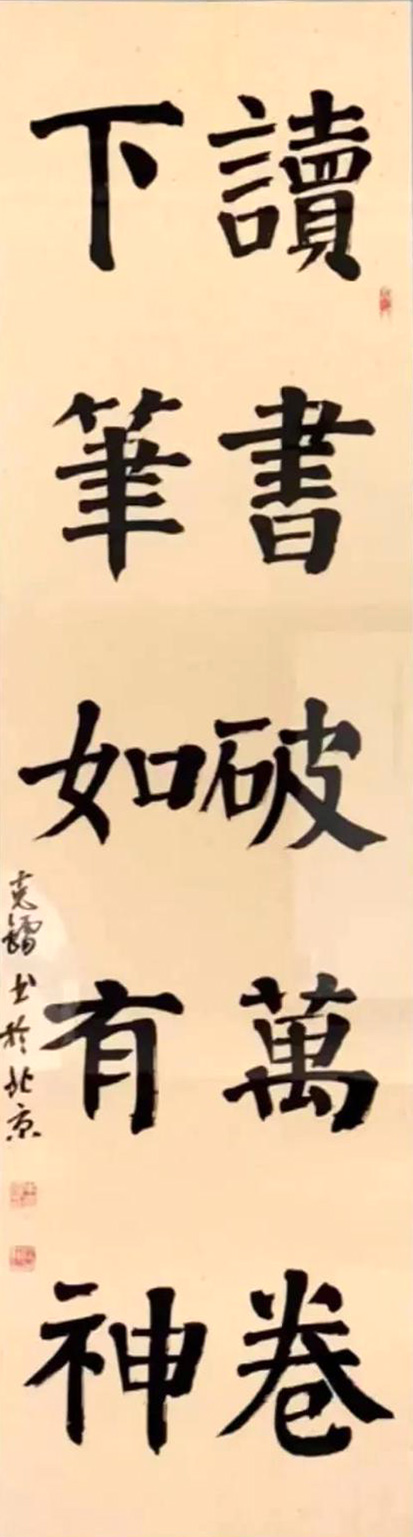 讀書破萬卷
下筆如有神
克鐍书於北京